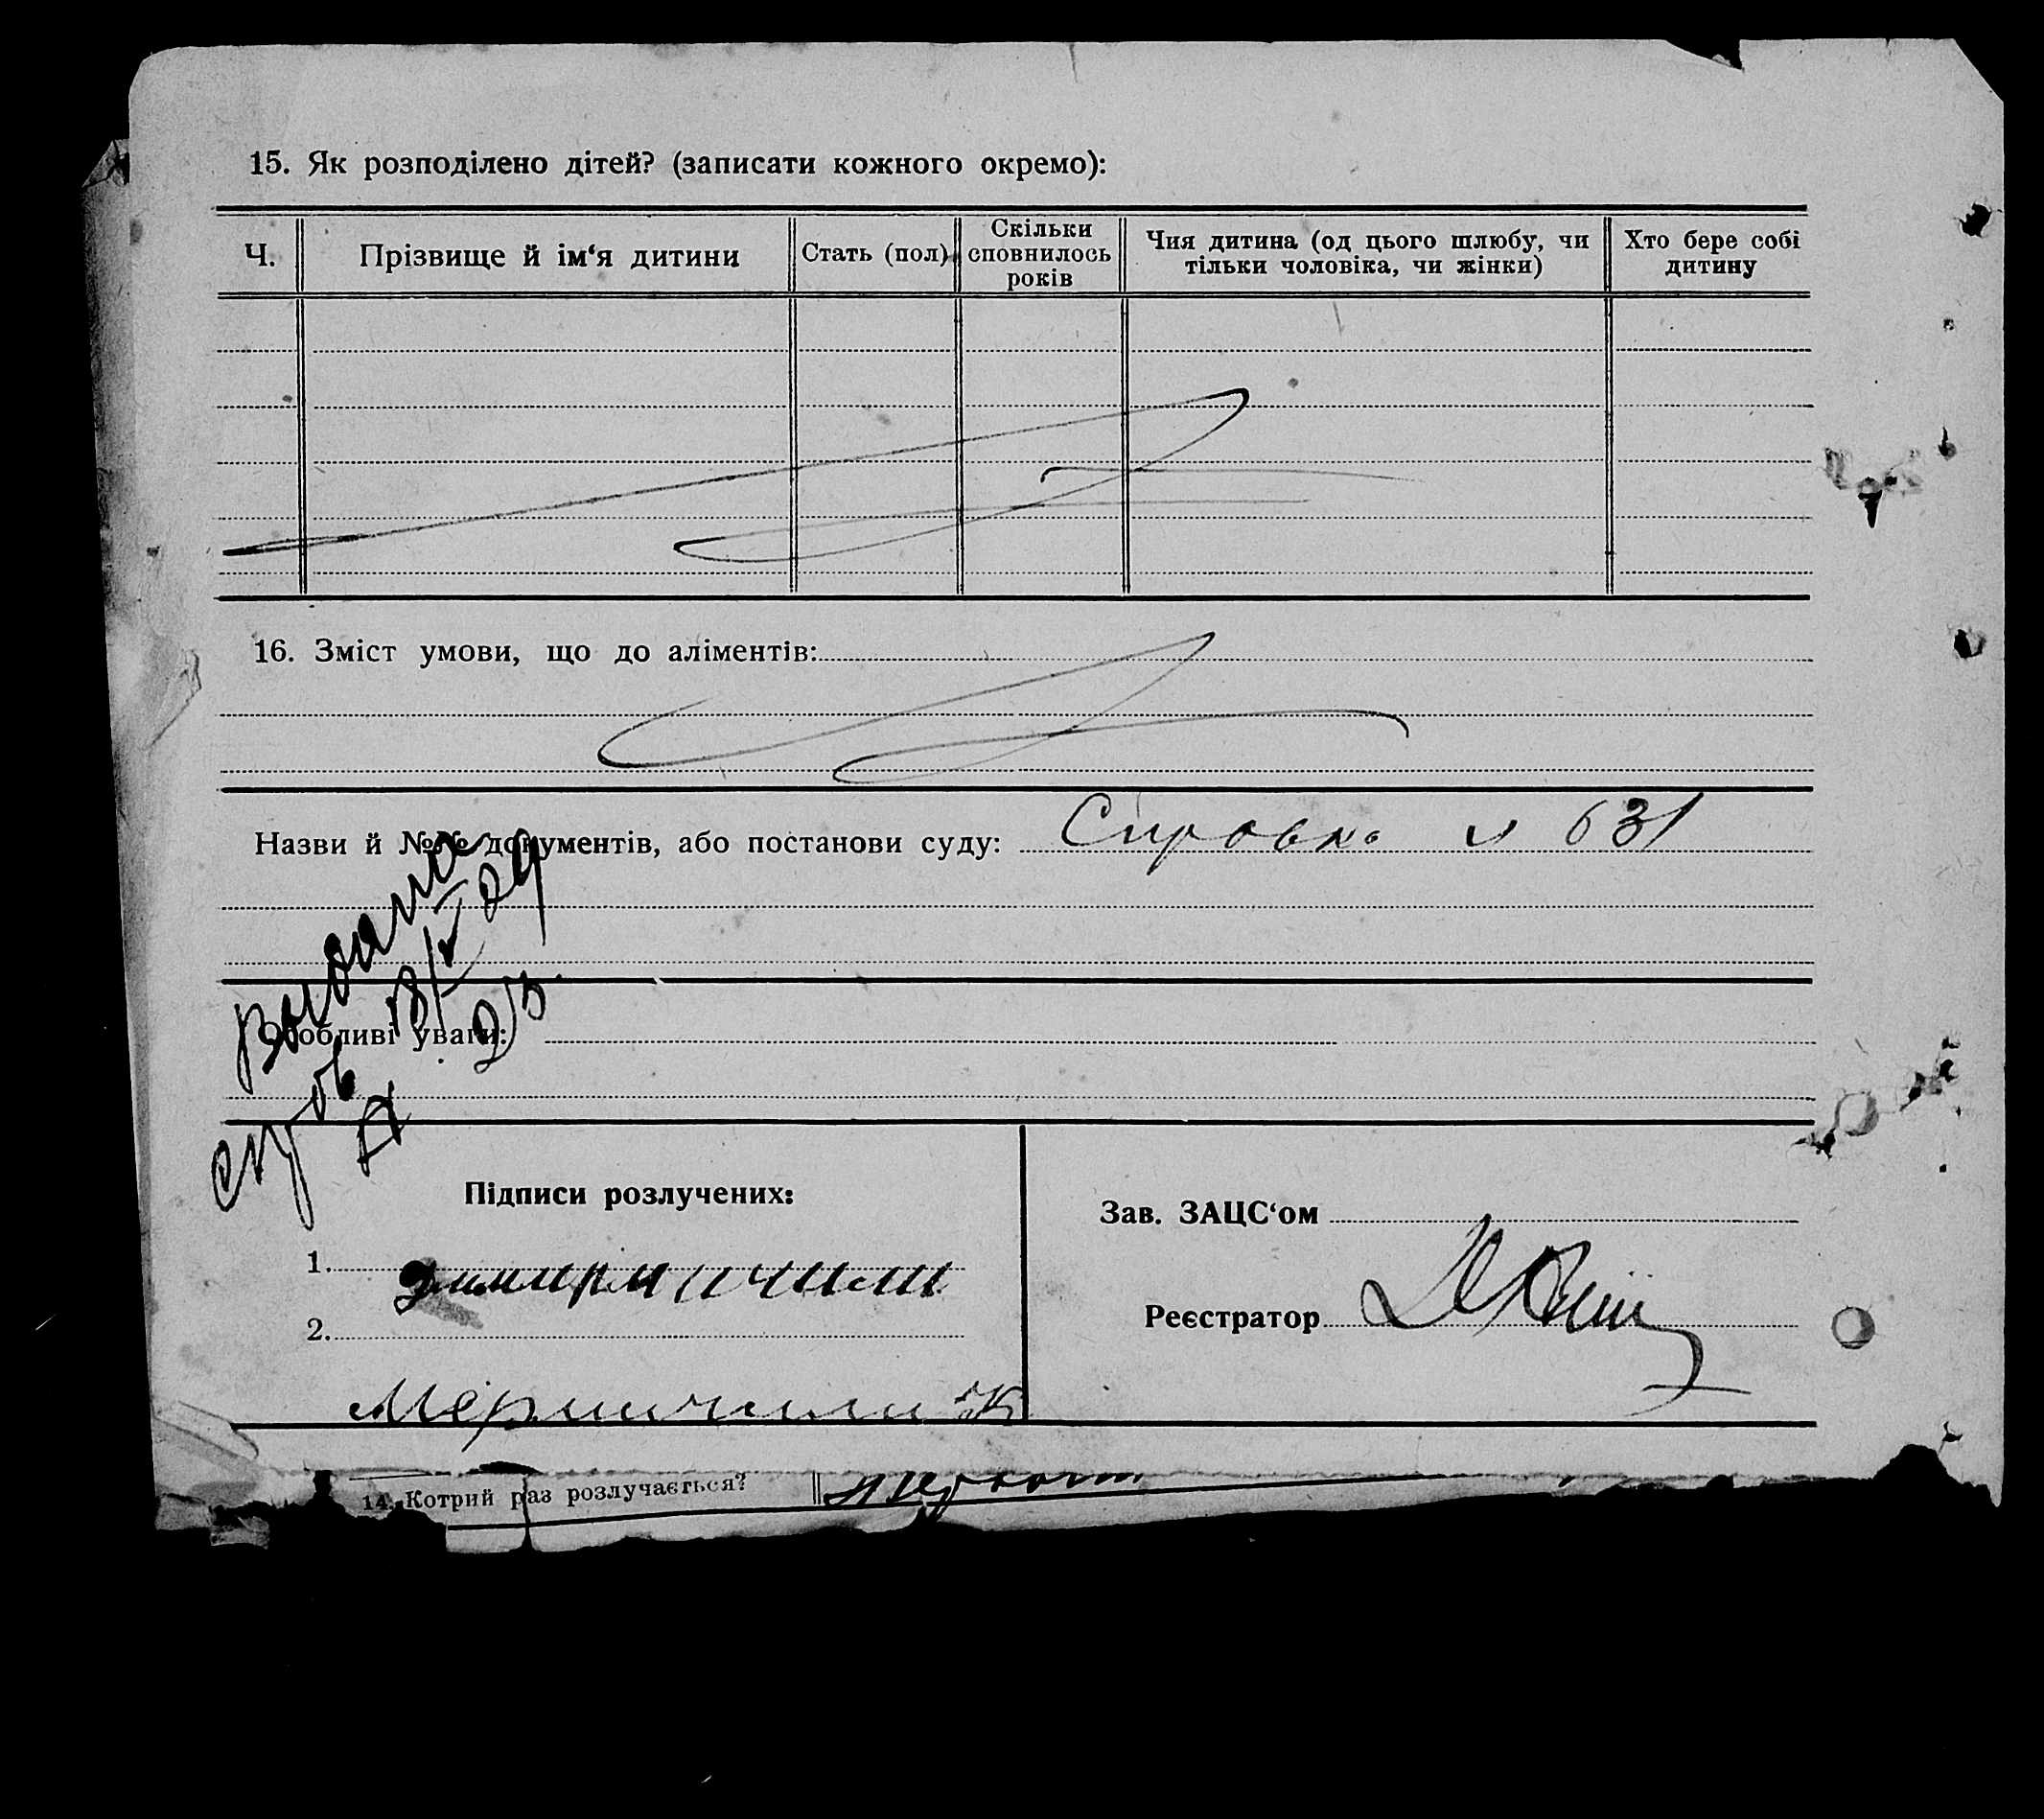 15. Як розподілено дітей? (записати кожного окремо):
Ч.
Прізвище й ім‘я дитини
Стать (пол)
Скільки
сповнилось
років
Чия дитина (од цього шлюбу, чи
тільки чоловіка, чи жінки)
Хто бере собі
дитину
16. Зміст умови, що до аліментів:
Назви й №№ документів, або постанови суду: Справка № 631
Особливі уваги:
Выдана
справ
18/V 29
Підписи розлучених:
1.
2.
Зав. ЗАЦС‘ом
Реєстратор
14. Котрий раз розлучається?